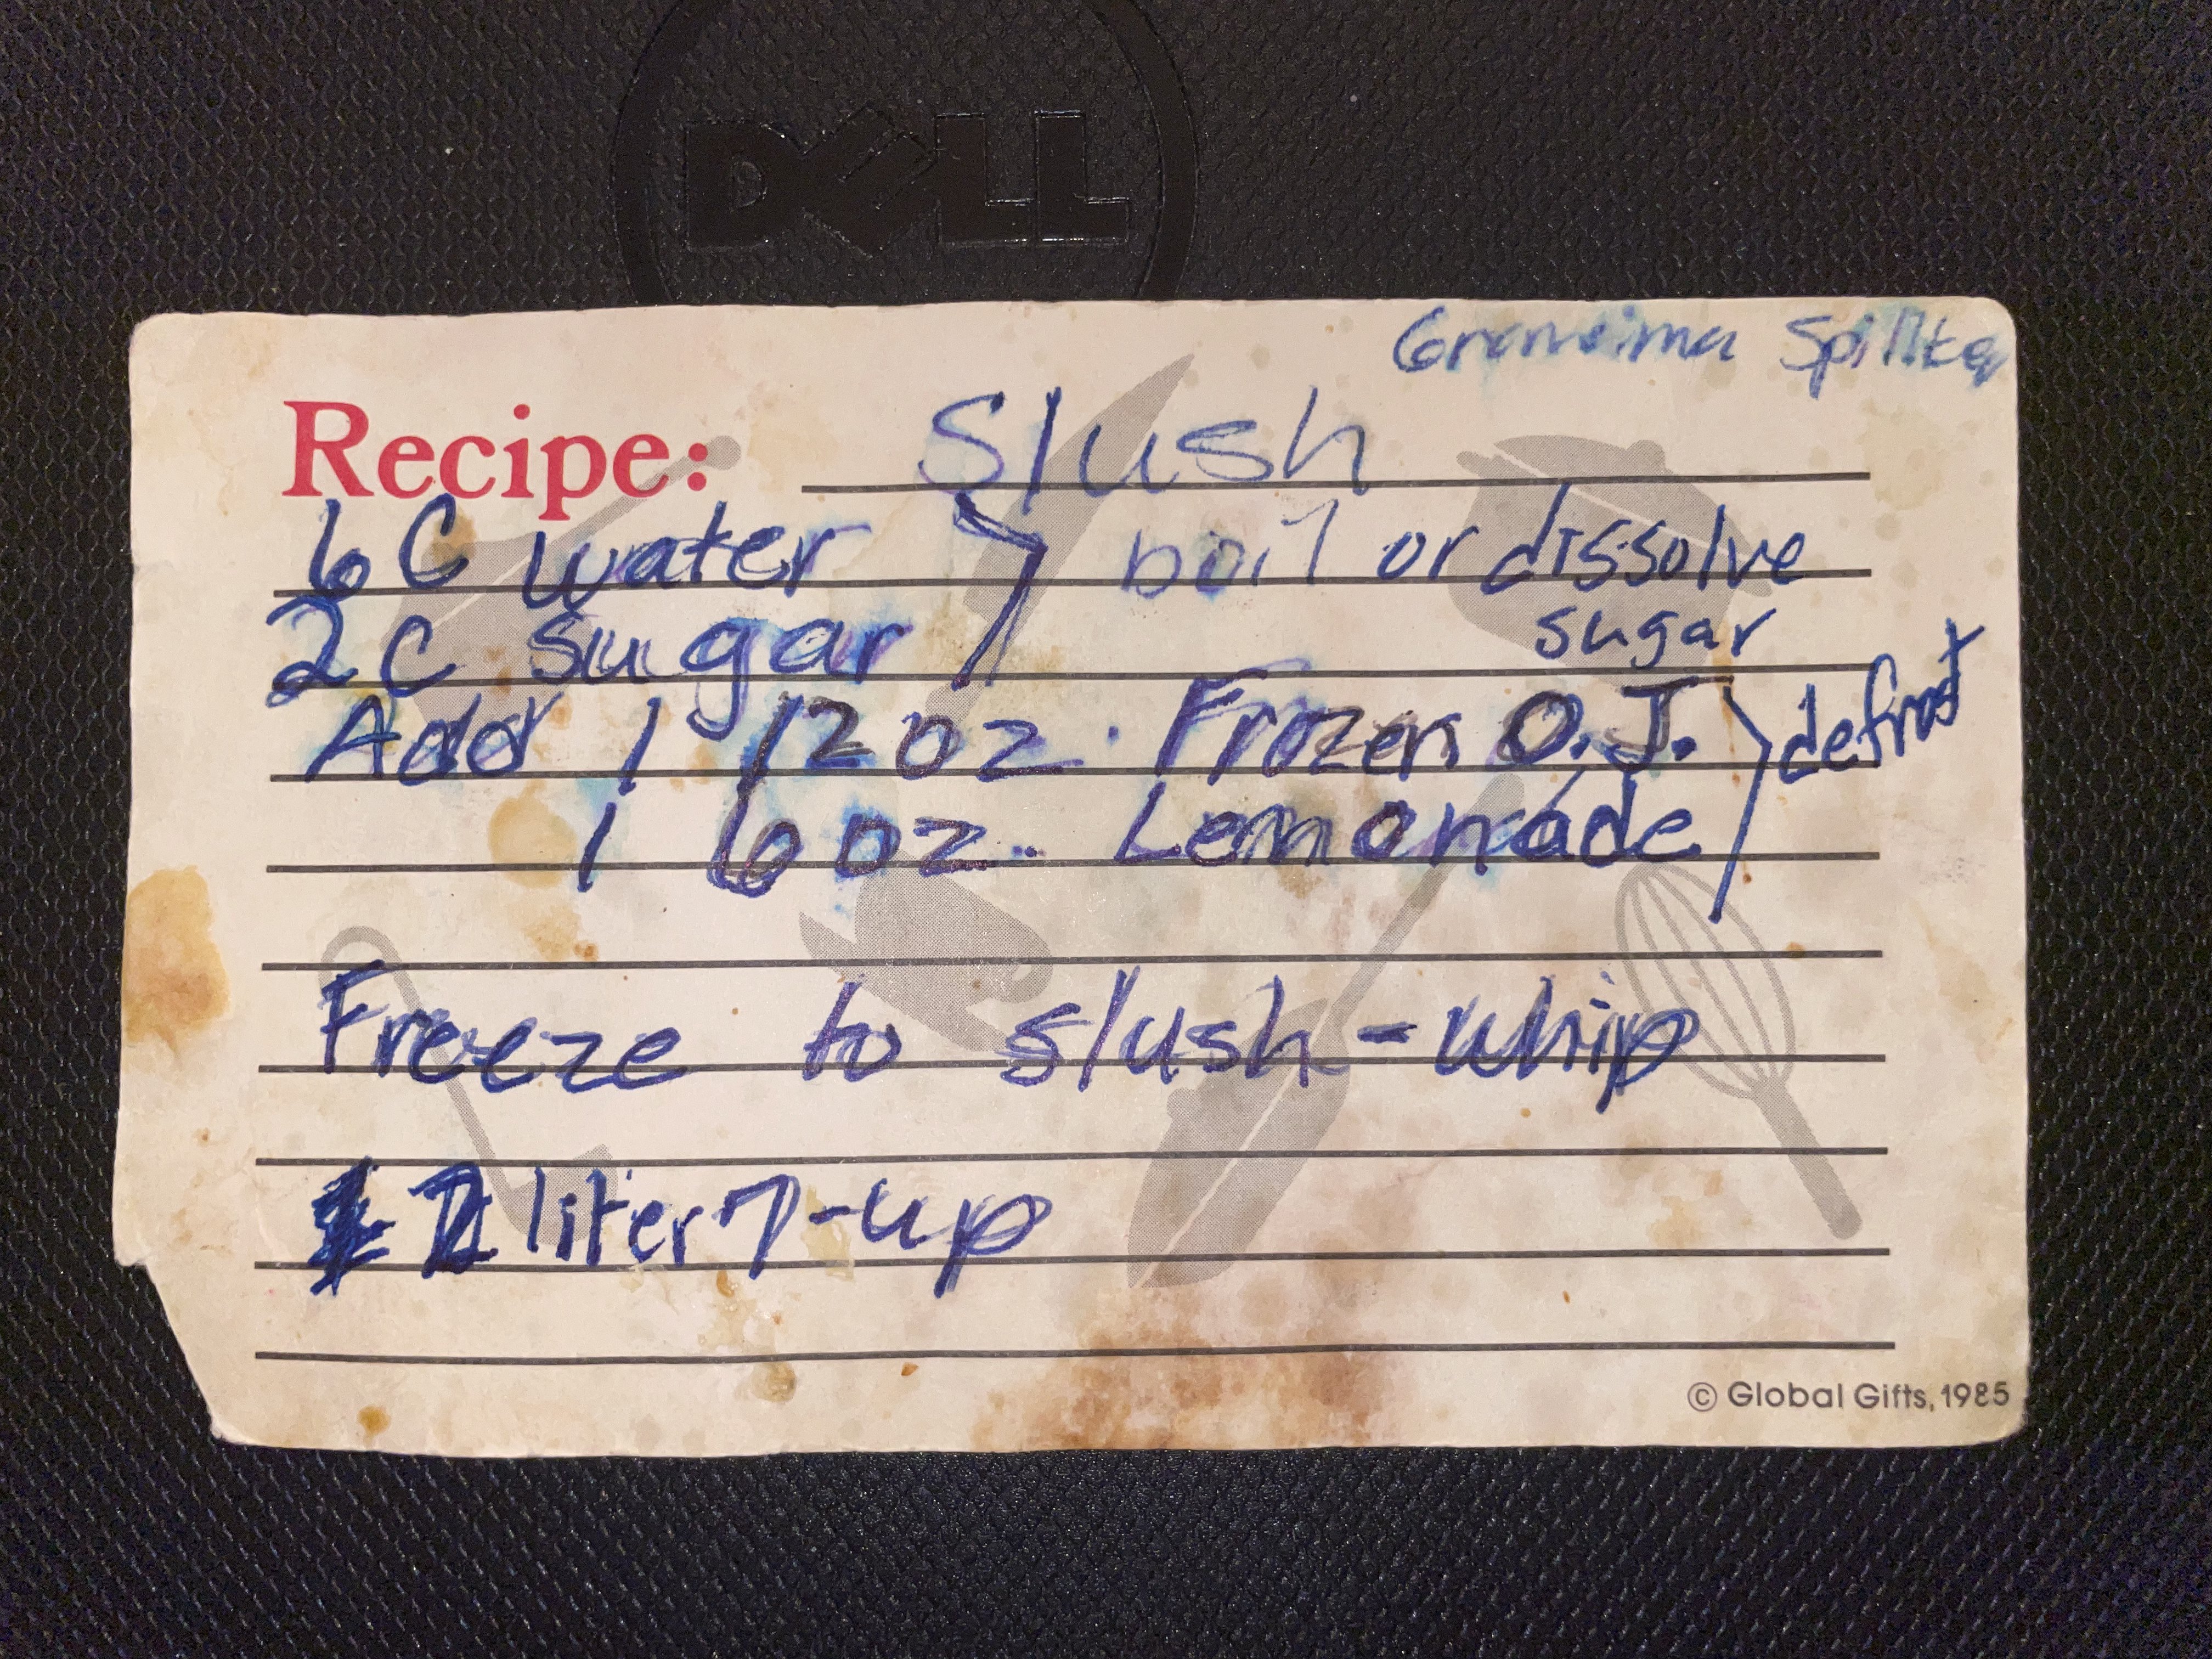 DELL
Grandma
Recipe: Slush
6 C water } boil or dissolve
2 C sugar sugar
Add 1 12 oz. Frozen O.J. } defrost
1 6 oz. Lemonade
Freeze to slush - whip
liter 7-up
© Global Gifts, 1985